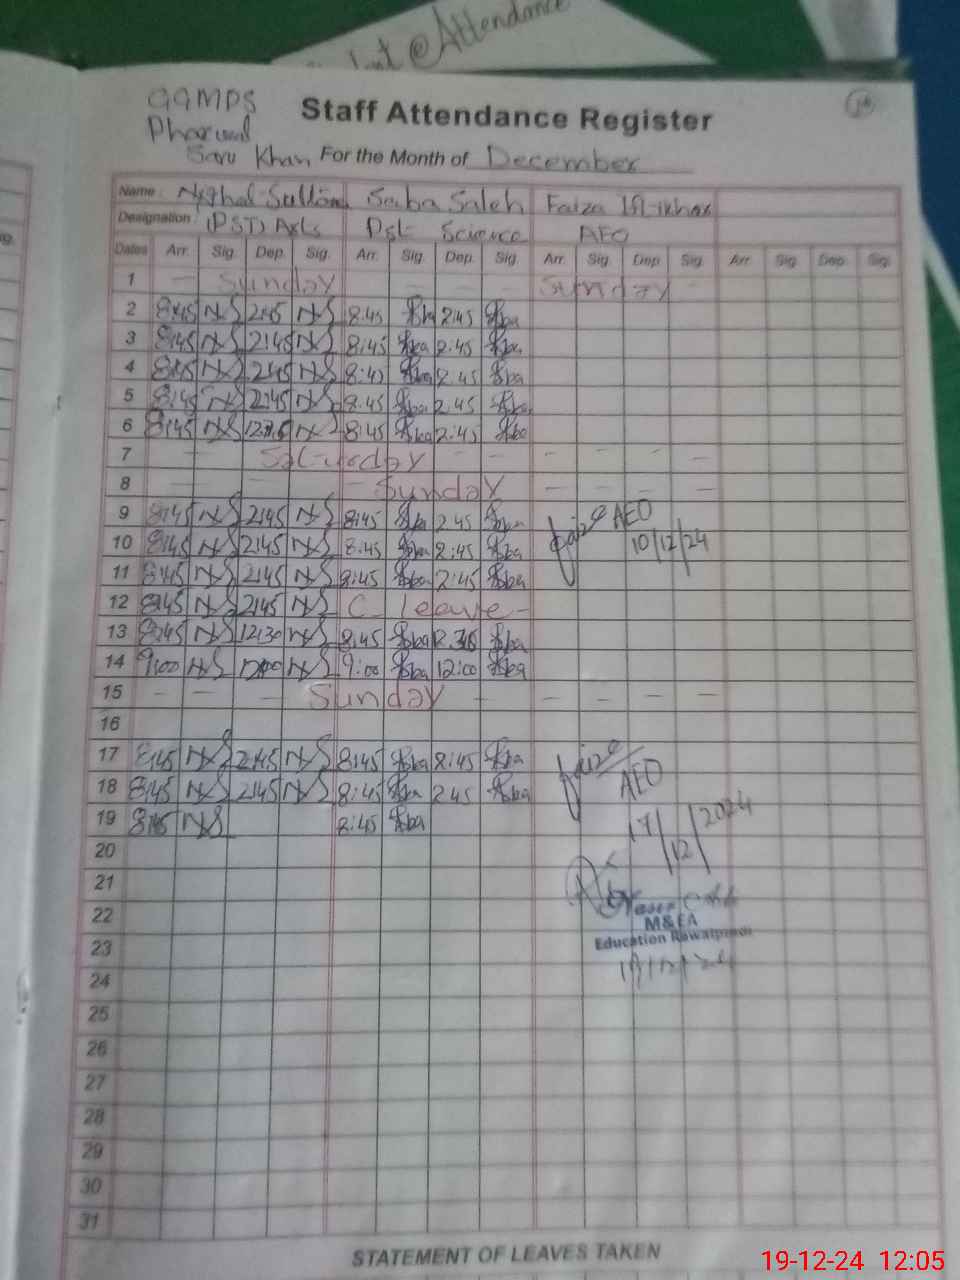 @ Attendance
GGMPS
Staff Attendance Register
Pharwal
Saru Khan For the Month of December
Name: Saba Saleh Faiza Iftikhar
Designation: (PST) Arts Pst Science AEO
Dates Arr. Sig. Dep. Sig. Arr. Sig. Dep. Sig. Arr. Sig. Dep. Sig. Arr. Sig. Dep. Sig.
1 - Sunday - - - Sunday -
2 8:45 NS 2:45 NS 8:45 Sba 2:45 Sba
3 8:45 NS 2:45 NS 8:45 Sba 2:45 Sba
4 8:45 NS 2:45 NS 8:45 Sba 2:45 Sba
5 8:45 NS 2:45 NS 8:45 Sba 2:45 Sba
6 8:45 NS NS 8:45 Sba 2:45 Sba
7 - - Saturday - - - - - -
8 - - - - Sunday - - - -
9 8:45 NS 2:45 NS 8:45 Sba 2:45 Sba Faiza AEO
10 8:45 NS 2:45 NS 8:45 Sba 2:45 Sba 10/12/24
11 8:45 NS 2:45 NS 8:45 Sba 2:45 Sba
12 8:45 NS 2:45 NS C- leave -
13 8:45 NS 12:30 NS 8:45 Sba Sba
14 9:00 NS 12:00 NS 9:00 Sba 12:00 Sba
15 - - - Sunday - - - - -
16
17 8:45 NS 2:45 NS 8:45 Sba 2:45 Sba Faiza
18 8:45 NS 2:45 NS 8:45 Sba 2:45 Sba AEO
19 8:45 NS 8:45 Sba 17/12/2024
20
21
22
M&EA
23 Education Rawalpindi
24
25
26
27
28
29
30
31
STATEMENT OF LEAVES TAKEN
19-12-24 12:05